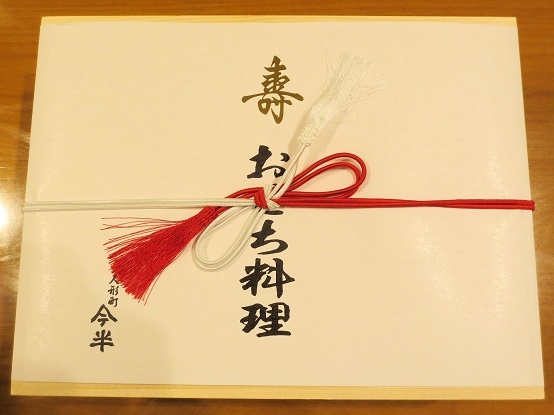 寿
おせち料理
人形町
今半